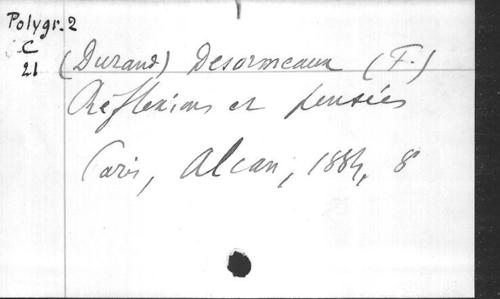 Polygr. 2
C
21
(Durand) Desormeaux (F.)
Réflexions et pensées
Paris, Alcan, 1884, 8°